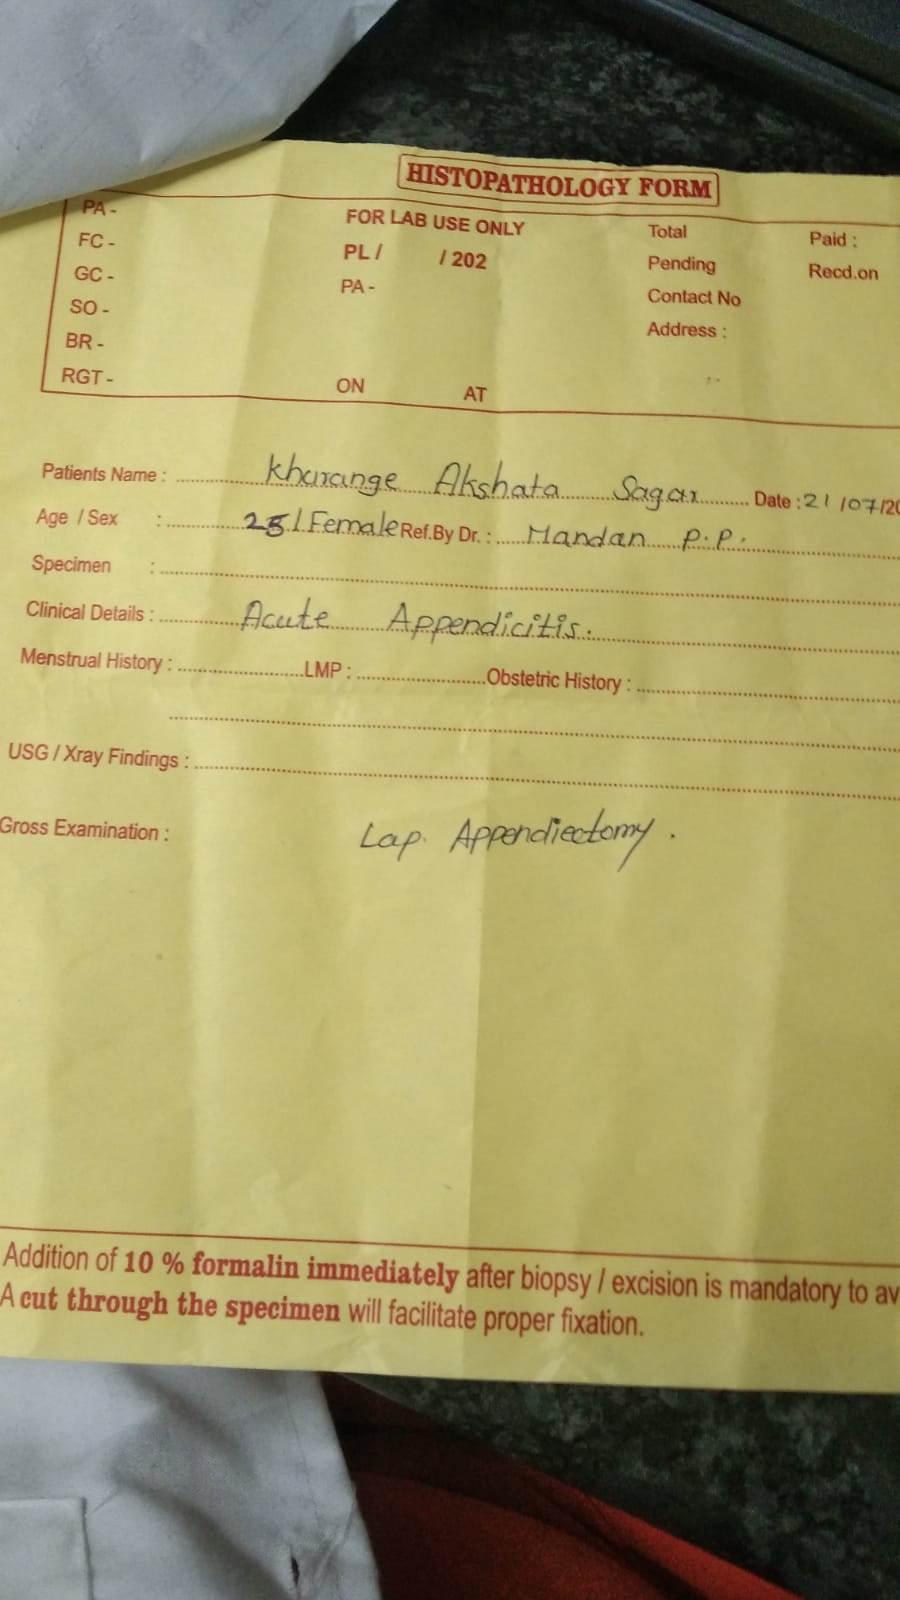 HISTOPATHOLOGY FORM
PA - FOR LAB USE ONLY Total Paid :
FC - PL / / 202 Pending Recd.on
GC - PA - Contact No
SO - Address :
BR -
RGT - ON AT
Patients Name : Kharange Akshata Sagar Date : 21/07/20
Age / Sex : 25/Female Ref.By Dr. : Mandan P.P.
Specimen :
Clinical Details : Acute Appendicitis.
Menstrual History : LMP : Obstetric History :
USG / Xray Findings :
Gross Examination : Lap. Appendiectomy.
Addition of 10 % formalin immediately after biopsy / excision is mandatory to av
A cut through the specimen will facilitate proper fixation.